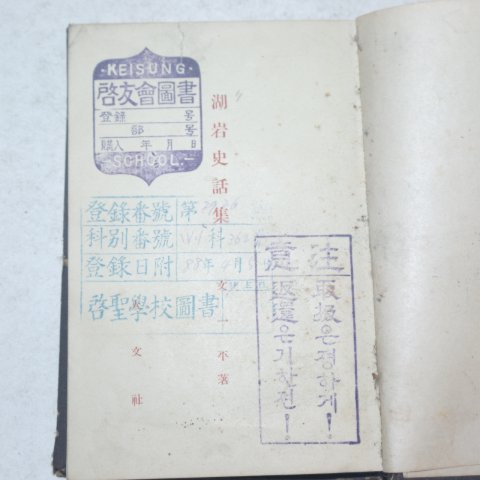 KEISUNG
啓友會圖書
登錄 号
部 号
購入 年 月 日
SCHOOL
湖岩史話集
文一平著
人文社
登錄番號 第
科別番號 科
登錄日附 年4月
啓聖學校圖書
注意
取扱은정하게!
返還은기한전!